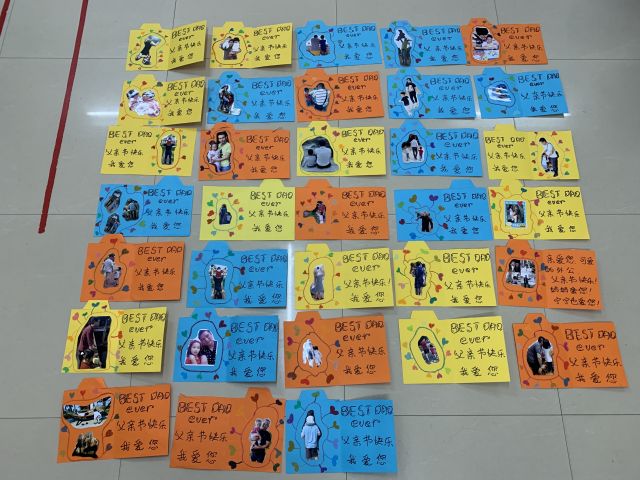 BEST DAD
ever
父亲节快乐
我爱您
BEST DAD
ever
父亲节快乐
我爱您
BEST DAD
ever
父亲节快乐
我爱您
BEST DAD
ever
父亲节快乐
我爱您
BEST DAD
ever
父亲节快乐
我爱您
BEST DAD
ever
父亲节快乐
我爱您
BEST DAD
ever
父亲节快乐
我爱您
BEST DAD
ever
父亲节快乐
我爱您
BEST DAD
ever
父亲节快乐
我爱您
BEST DAD
ever
父亲节快乐
我爱您
BEST DAD
ever
父亲节快乐
我爱您
BEST DAD
ever
父亲节快乐
我爱您
BEST DAD
ever
父亲节快乐
我爱您
BEST DAD
ever
父亲节快乐
我爱您
BEST DAD
ever
父亲节快乐
我爱您
BEST DAD
ever
父亲节快乐
我爱您
BEST DAD
ever
父亲节快乐
我爱您
BEST DAD
ever
父亲节快乐
我爱您
BEST DAD
ever
父亲节快乐
我爱您
BEST DAD
ever
父亲节快乐
我爱您
BEST DAD
ever
父亲节快乐
我爱您
BEST DAD
ever
父亲节快乐!
我爱您
BEST DAD
ever
父亲节快乐
我爱您
BEST DAD
ever
父亲节快乐
我爱您
亲爱的,可爱
的外公
父亲节快乐!
妈妈爱您!
宁宁也爱您!
BEST DAD
ever
父亲节快乐
我爱您
BEST DAD
ever
父亲节快乐
我爱您
BEST DAD
ever
父亲节快乐
我爱您
BEST DAD
ever
父亲节快乐
我爱您
BEST DAD
ever
父亲节快乐
我爱您
BEST DAD
ever
父亲节快乐
我爱您
BEST DAD
ever
父亲节快乐
我爱您
BEST DAD
ever
父亲节快乐
我爱您